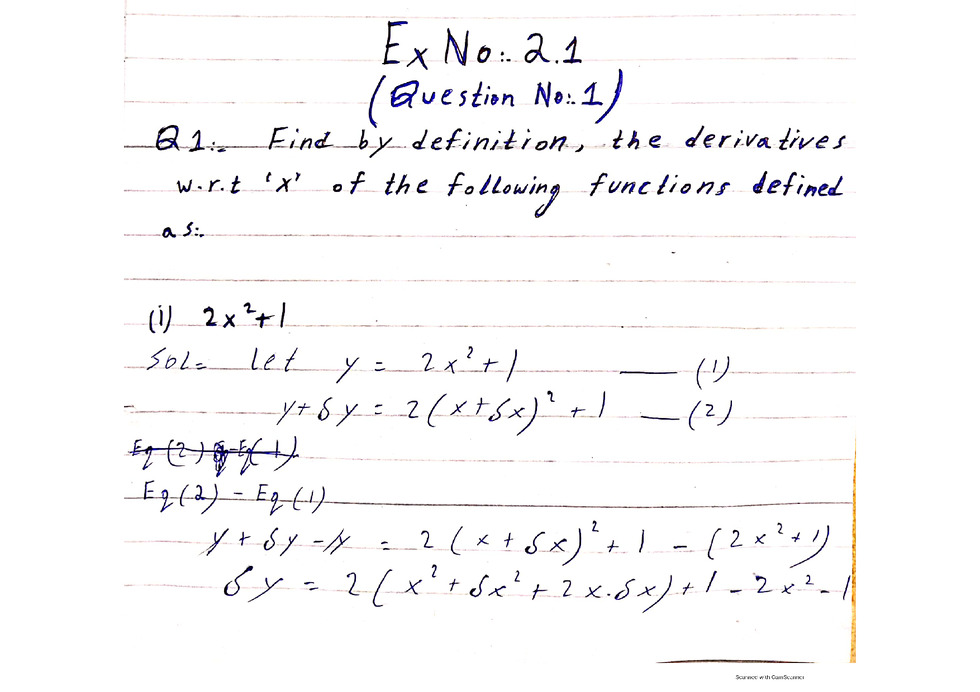 Ex No:. 2.1
(Question No:. 1)
Q1:. Find by definition, the derivatives
w.r.t 'x' of the following functions defined
as:.
(i) 2x²+1
Sol= let y = 2x²+1 —— (1)
y+δy = 2(x+δx)²+1 —(2)
Eq(2) - Eq(1)
y+δy-y = 2(x+δx)²+1-(2x²+1)
δy = 2(x²+δx²+2x.δx)+1-2x²-1
Scanned with CamScanner